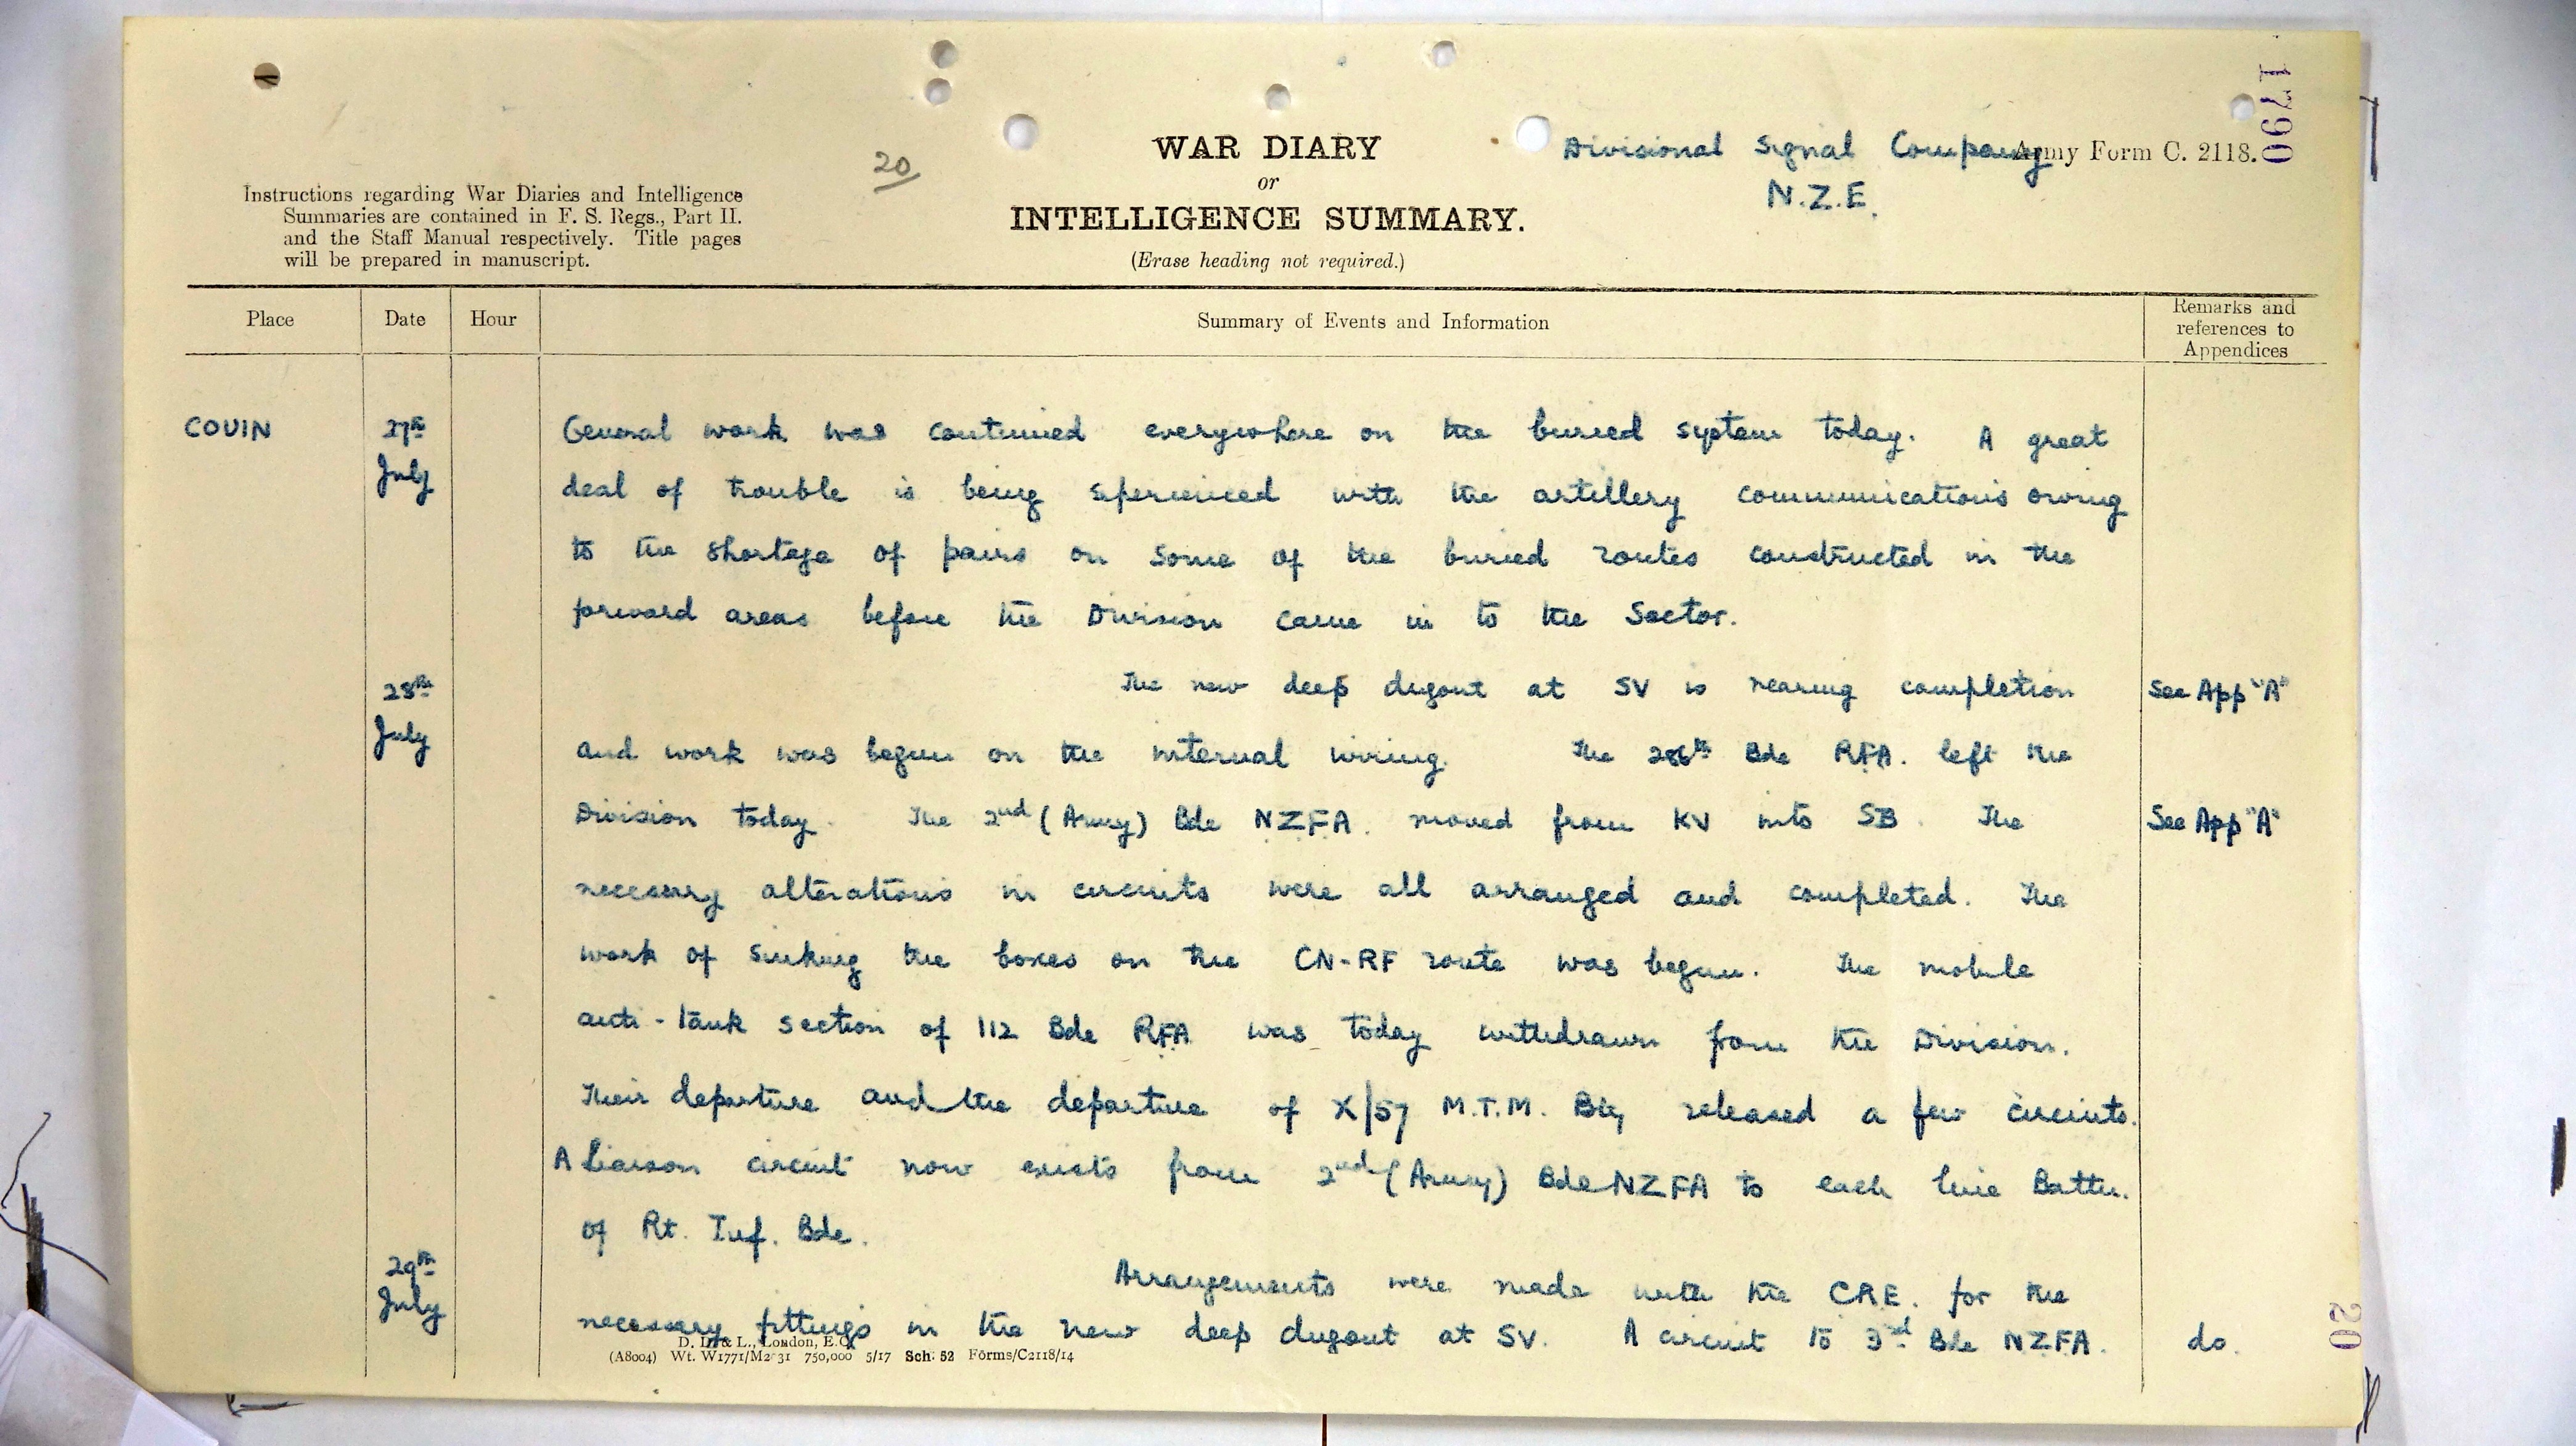 1790
20
WAR DIARY
or
INTELLIGENCE SUMMARY.
(Erase heading not required.)
Divisional Signal Company
N.Z.E.
Army Form C. 2118.
Instructions regarding War Diaries and Intelligence
Summaries are contained in F. S. Regs., Part II.
and the Staff Manual respectively. Title pages
will be prepared in manuscript.
Place Date Hour Summary of Events and Information Remarks and
references to
Appendices
COUIN 27th July General work was continued everywhere on the buried system today. A great
deal of trouble is being experienced with the artillery communications owing
to the shortage of pairs on some of the buried routes constructed in the
forward areas before the Division came in to the Sector.
28th July The new deep dugout at SV is nearing completion See App "A"
and work was begun on the internal wiring. The 286th Bde RFA. left the
Division today. The 2nd (Army) Bde NZFA. moved from KV into SB. The See App "A"
necessary alterations in circuits were all arranged and completed. The
work of sinking the boxes on the CN-RF route was begun. The mobile
anti-tank section of 112 Bde RFA was today withdrawn from the Division.
Their departure and the departure of X/57 M.T.M. Bty released a few circuits.
A liaison circuit now exists from 2nd (Army) Bde NZFA to each line Battn.
of Rt. Inf. Bde.
29th July Arrangements were made with the CRE. for the
necessary fittings in the new deep dugout at SV. A circuit to 3rd Bde NZFA. do.
D. D. & L., London, E.C.
(A8004) Wt. W1771/M2 31 750,000 5/17 Sch: 52 Forms/C2118/14
20